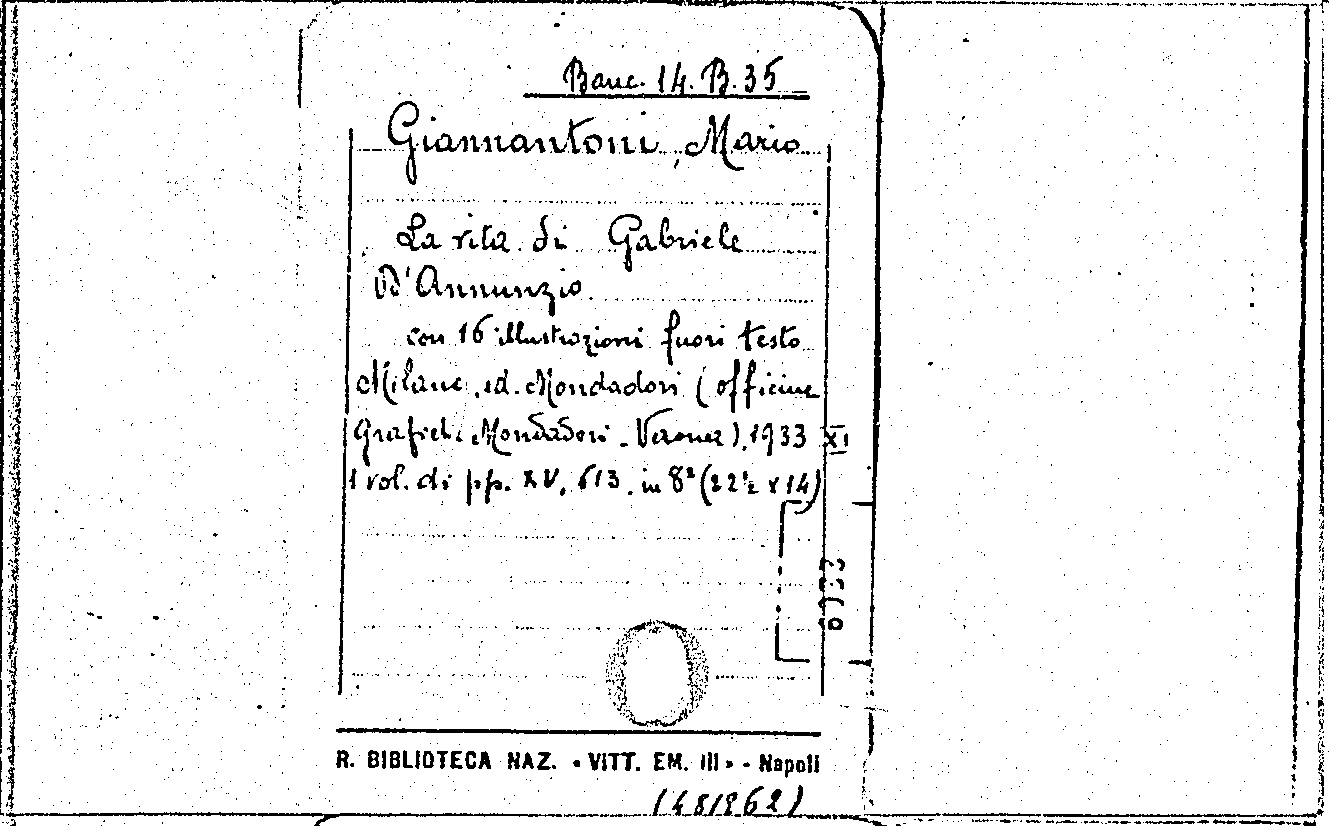 Banc. 14. B. 35
Giannantoni, Mario
La vita di Gabriele
D'Annunzio
con 16 illustrazioni fuori testo
Milano, ed. Mondadori (officine
Grafiche Mondadori - Verona), 1933 XI
1 vol. di pp. XV, 613. in 8° (22½ x 14)
R. BIBLIOTECA NAZ. « VITT. EM. III » - Napoli
(481862)